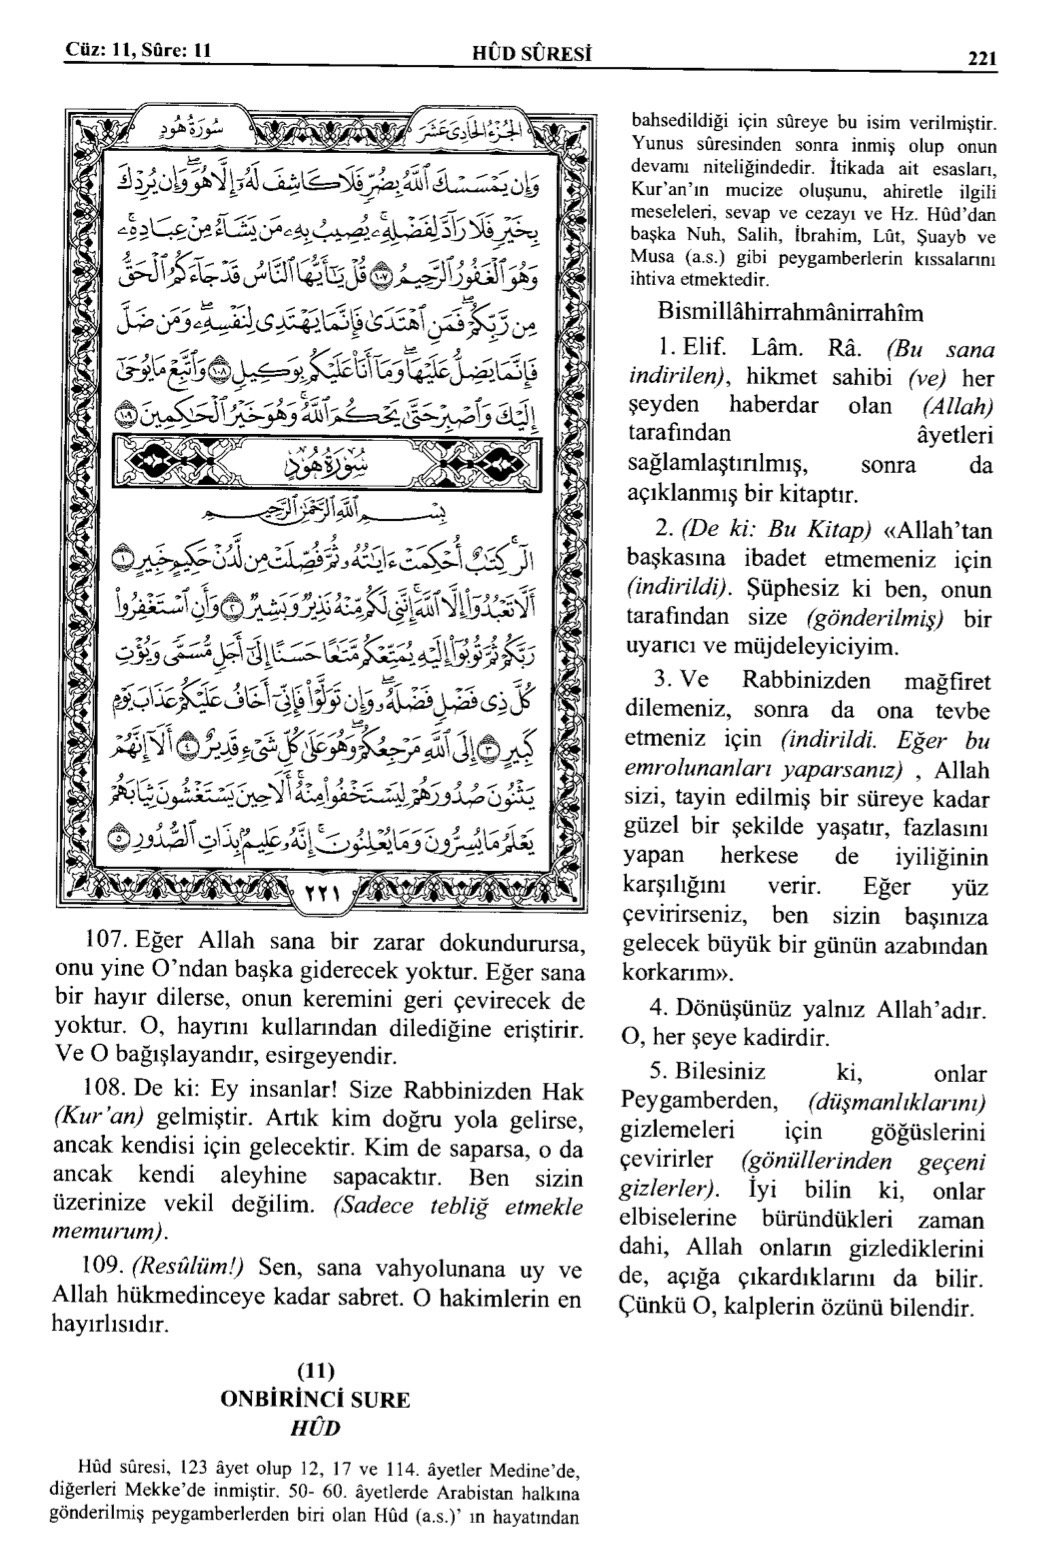 Cüz: 11, Sûre: 11
HÛD SÛRESİ
221
سُورَةُ هُودٍ
الجُزْءُ الحَادِي عَشَرَ
وَإِن يَمْسَسْكَ ٱللَّهُ بِضُرٍّ فَلَا كَاشِفَ لَهُۥٓ إِلَّا هُوَۖ وَإِن يُرِدْكَ
بِخَيْرٍ فَلَا رَآدَّ لِفَضْلِهِۦۚ يُصِيبُ بِهِۦ مَن يَشَآءُ مِنْ عِبَادِهِۦۚ
وَهُوَ ٱلْغَفُورُ ٱلرَّحِيمُ ١٠٧ قُلْ يَٰٓأَيُّهَا ٱلنَّاسُ قَدْ جَآءَكُمُ ٱلْحَقُّ
مِن رَّبِّكُمْۖ فَمَنِ ٱهْتَدَىٰ فَإِنَّمَا يَهْتَدِى لِنَفْسِهِۦۖ وَمَن ضَلَّ
فَإِنَّمَا يَضِلُّ عَلَيْهَاۖ وَمَآ أَنَا۠ عَلَيْكُم بِوَكِيلٍ ١٠٨ وَٱتَّبِعْ مَا يُوحَىٰٓ
إِلَيْكَ وَٱصْبِرْ حَتَّىٰ يَحْكُمَ ٱللَّهُۚ وَهُوَ خَيْرُ ٱلْحَٰكِمِينَ ١٠٩
سُورَةُ هُودٍ
بِسْمِ ٱللَّهِ ٱلرَّحْمَٰنِ ٱلرَّحِيمِ
الٓرۚ كِتَٰبٌ أُحْكِمَتْ ءَايَٰتُهُۥ ثُمَّ فُصِّلَتْ مِن لَّدُنْ حَكِيمٍ خَبِيرٍ ١
أَلَّا تَعْبُدُوٓا۟ إِلَّا ٱللَّهَۚ إِنَّنِى لَكُم مِّنْهُ نَذِيرٌ وَبَشِيرٌ ٢ وَأَنِ ٱسْتَغْفِرُوا۟
رَبَّكُمْ ثُمَّ تُوبُوٓا۟ إِلَيْهِ يُمَتِّعْكُم مَّتَٰعًا حَسَنًا إِلَىٰٓ أَجَلٍ مُّسَمًّى وَيُؤْتِ
كُلَّ ذِى فَضْلٍ فَضْلَهُۥۖ وَإِن تَوَلَّوْا۟ فَإِنِّىٓ أَخَافُ عَلَيْكُمْ عَذَابَ يَوْمٍ
كَبِيرٍ ٣ إِلَى ٱللَّهِ مَرْجِعُكُمْۖ وَهُوَ عَلَىٰ كُلِّ شَىْءٍ قَدِيرٌ ٤ أَلَآ إِنَّهُمْ
يَثْنُونَ صُدُورَهُمْ لِيَسْتَخْفُوا۟ مِنْهُۚ أَلَا حِينَ يَسْتَغْشُونَ ثِيَابَهُمْ
يَعْلَمُ مَا يُسِرُّونَ وَمَا يُعْلِنُونَۚ إِنَّهُۥ عَلِيمٌۢ بِذَاتِ ٱلصُّدُورِ ٥
٢٢١
107. Eğer Allah sana bir zarar dokundurursa,
onu yine O'ndan başka giderecek yoktur. Eğer sana
bir hayır dilerse, onun keremini geri çevirecek de
yoktur. O, hayrını kullarından dilediğine eriştirir.
Ve O bağışlayandır, esirgeyendir.
108. De ki: Ey insanlar! Size Rabbinizden Hak
(Kur'an) gelmiştir. Artık kim doğru yola gelirse,
ancak kendisi için gelecektir. Kim de saparsa, o da
ancak kendi aleyhine sapacaktır. Ben sizin
üzerinize vekil değilim. (Sadece tebliğ etmekle
memurum).
109. (Resûlüm!) Sen, sana vahyolunana uy ve
Allah hükmedinceye kadar sabret. O hakimlerin en
hayırlısıdır.
(11)
ONBİRİNCİ SURE
HÛD
Hûd sûresi, 123 âyet olup 12, 17 ve 114. âyetler Medine'de,
diğerleri Mekke'de inmiştir. 50- 60. âyetlerde Arabistan halkına
gönderilmiş peygamberlerden biri olan Hûd (a.s.)' ın hayatından
bahsedildiği için sûreye bu isim verilmiştir.
Yunus sûresinden sonra inmiş olup onun
devamı niteliğindedir. İtikada ait esasları,
Kur'an'ın mucize oluşunu, ahiretle ilgili
meseleleri, sevap ve cezayı ve Hz. Hûd'dan
başka Nuh, Salih, İbrahim, Lût, Şuayb ve
Musa (a.s.) gibi peygamberlerin kıssalarını
ihtiva etmektedir.
Bismillâhirrahmânirrahîm
1. Elif. Lâm. Râ. (Bu sana
indirilen), hikmet sahibi (ve) her
şeyden haberdar olan (Allah)
tarafından âyetleri
sağlamlaştırılmış, sonra da
açıklanmış bir kitaptır.
2. (De ki: Bu Kitap) «Allah'tan
başkasına ibadet etmemeniz için
(indirildi). Şüphesiz ki ben, onun
tarafından size (gönderilmiş) bir
uyarıcı ve müjdeleyiciyim.
3. Ve Rabbinizden mağfiret
dilemeniz, sonra da ona tevbe
etmeniz için (indirildi. Eğer bu
emrolunanları yaparsanız) , Allah
sizi, tayin edilmiş bir süreye kadar
güzel bir şekilde yaşatır, fazlasını
yapan herkese de iyiliğinin
karşılığını verir. Eğer yüz
çevirirseniz, ben sizin başınıza
gelecek büyük bir günün azabından
korkarım».
4. Dönüşünüz yalnız Allah'adır.
O, her şeye kadirdir.
5. Bilesiniz ki, onlar
Peygamberden, (düşmanlıklarını)
gizlemeleri için göğüslerini
çevirirler (gönüllerinden geçeni
gizlerler). İyi bilin ki, onlar
elbiselerine büründükleri zaman
dahi, Allah onların gizlediklerini
de, açığa çıkardıklarını da bilir.
Çünkü O, kalplerin özünü bilendir.